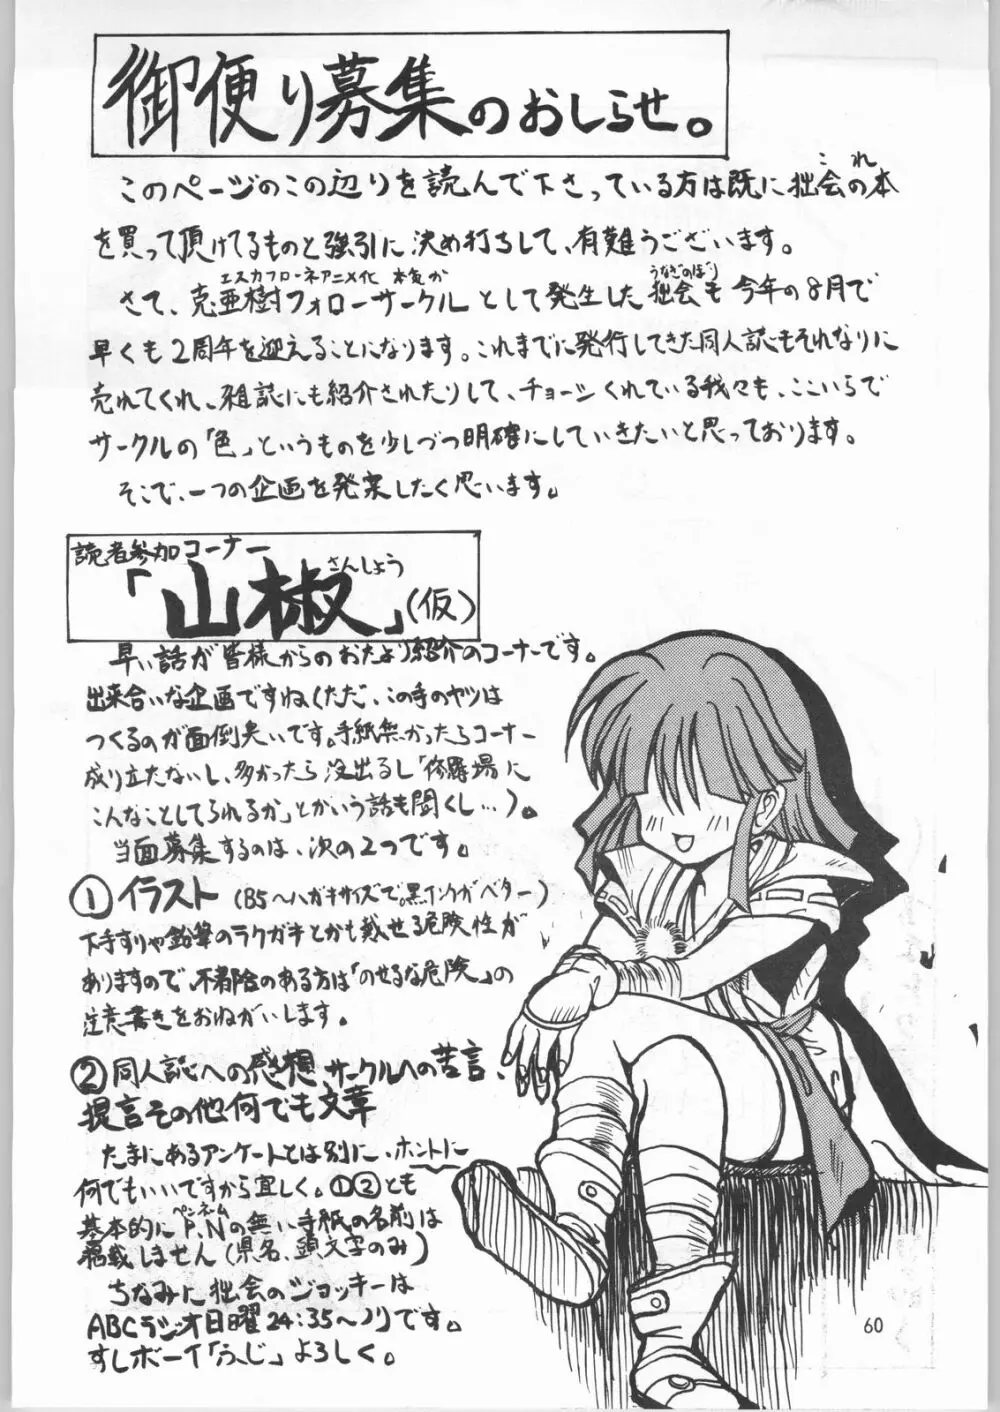 御便り募集のおしらせ。
このページのこの辺りを読んで下さっている方は既に拙会の本
これ
を買って頂けてるものと強引に決め打ちして、有難うございます。
エスカフローネアニメ化 本気か
うなぎのぼり
さて、克亜樹フォローサークルとして発生した拙会も今年の8月で
早くも2周年を迎えることになります。これまでに発行してきた同人誌もそれなりに
売れてくれ、雑誌にも紹介されたりして、チョーシくれている我々も、ここいらで
サークルの「色」というものを少しづつ明確にしていきたいと思っております。
そこで、一つの企画を発案したく思います。
読者参加コーナー
さんしょう
「山椒」(仮)
早い話が皆様からのおたより紹介のコーナーです。
出来合いな企画ですね(ただ、この手のヤツは
つくるのが面倒臭いです。手紙無かったらコーナー
成り立たないし、多かったら没出るし「修羅場に
こんなことしてられるか」とかいう話も聞くし…)。
当面募集するのは、次の2つです。
①イラスト(B5〜ハガキサイズで。黒インクがベター)
下手すりゃ鉛筆のラクガキとかも載せる危険性が
ありますので、不着陸のある方は「のせるな危険」の
注意書きをおねがいします。
②同人誌への感想、サークルへの苦言、
提言その他何でも文章
たまにあるアンケートとは別に、ホントに
何でもいいですから宜しく。①②とも
ペンネーム
基本的にP.Nの無い手紙の名前は
掲載しません(県名、頭文字のみ)
ちなみに拙会のジョッキーは
ABCラジオ日曜24:35〜ノリです。
すしボーイ「ふじ」よろしく。
60